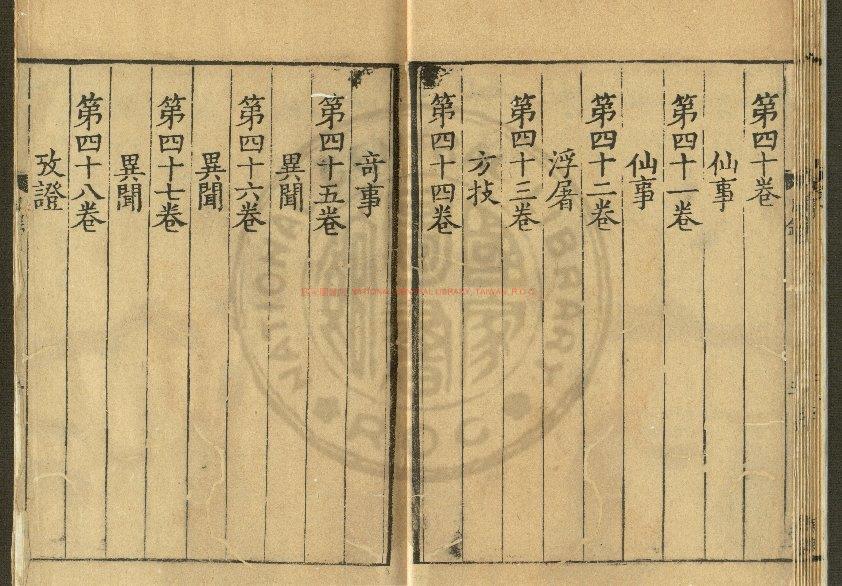 第四十卷
仙事
第四十一卷
仙事
第四十二卷
浮屠
第四十三卷
方技
第四十四卷
竒事
第四十五卷
異聞
第四十六卷
異聞
第四十七卷
異聞
第四十八卷
攷證
NATIONAL CENTRAL LIBRARY, TAIWAN, R.O.C